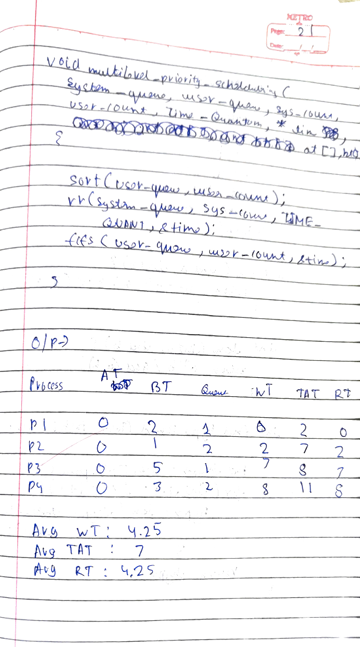 METRO
Page: 21
Date:
void multilevel_priority_scheduling (
system_queue, user_queue, sys_count,
user_count, Time_Quantum, *
at [], bt[]
{
sort (user_queue, user_count);
rr (system_queue, sys_count, TIME_
QUANT, &time);
fcfs (user_queue, user_count, &time);
}
O/P →
Process AT BT Queue WT TAT RT
P1 0 2 1 0 2 0
P2 0 1 2 2 7 2
P3 0 5 1 7 8 7
P4 0 3 2 8 11 8
Avg WT : 4.25
Avg TAT : 7
Avg RT : 4.25